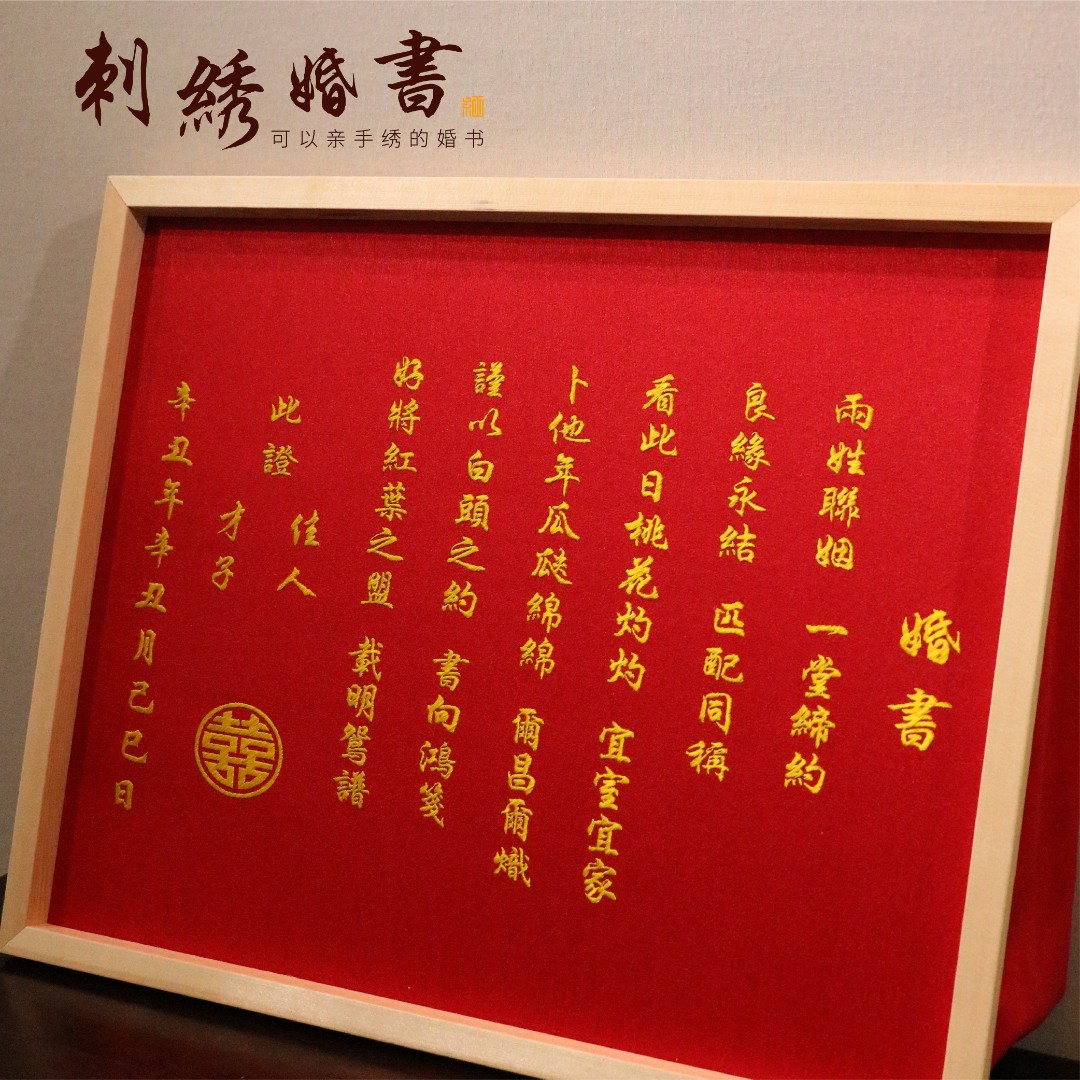 刺綉婚書
可以亲手绣的婚书
婚書
兩姓聯姻 一堂締約
良緣永結 匹配同稱
看此日桃花灼灼 宜室宜家
卜他年瓜瓞綿綿 爾昌爾熾
謹以白頭之約 書向鴻箋
好將紅葉之盟 載明鴛譜
此證
佳人
才子
囍
辛丑年辛丑月己巳日